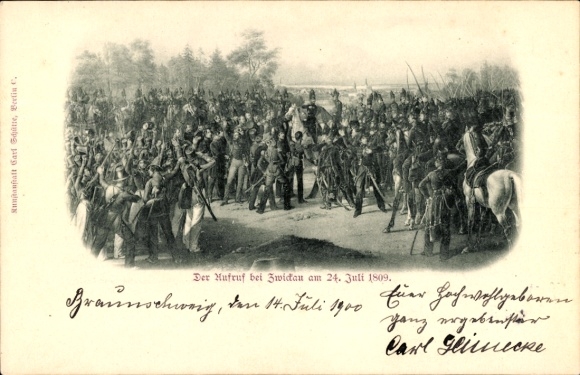 Kunstanstalt Carl Schütte, Berlin C.
Der Aufruf bei Zwickau am 24. Juli 1809.
Braunschweig, den 14. Juli 1900
Euer Hochwohlgeboren
ganz ergebenster
Carl